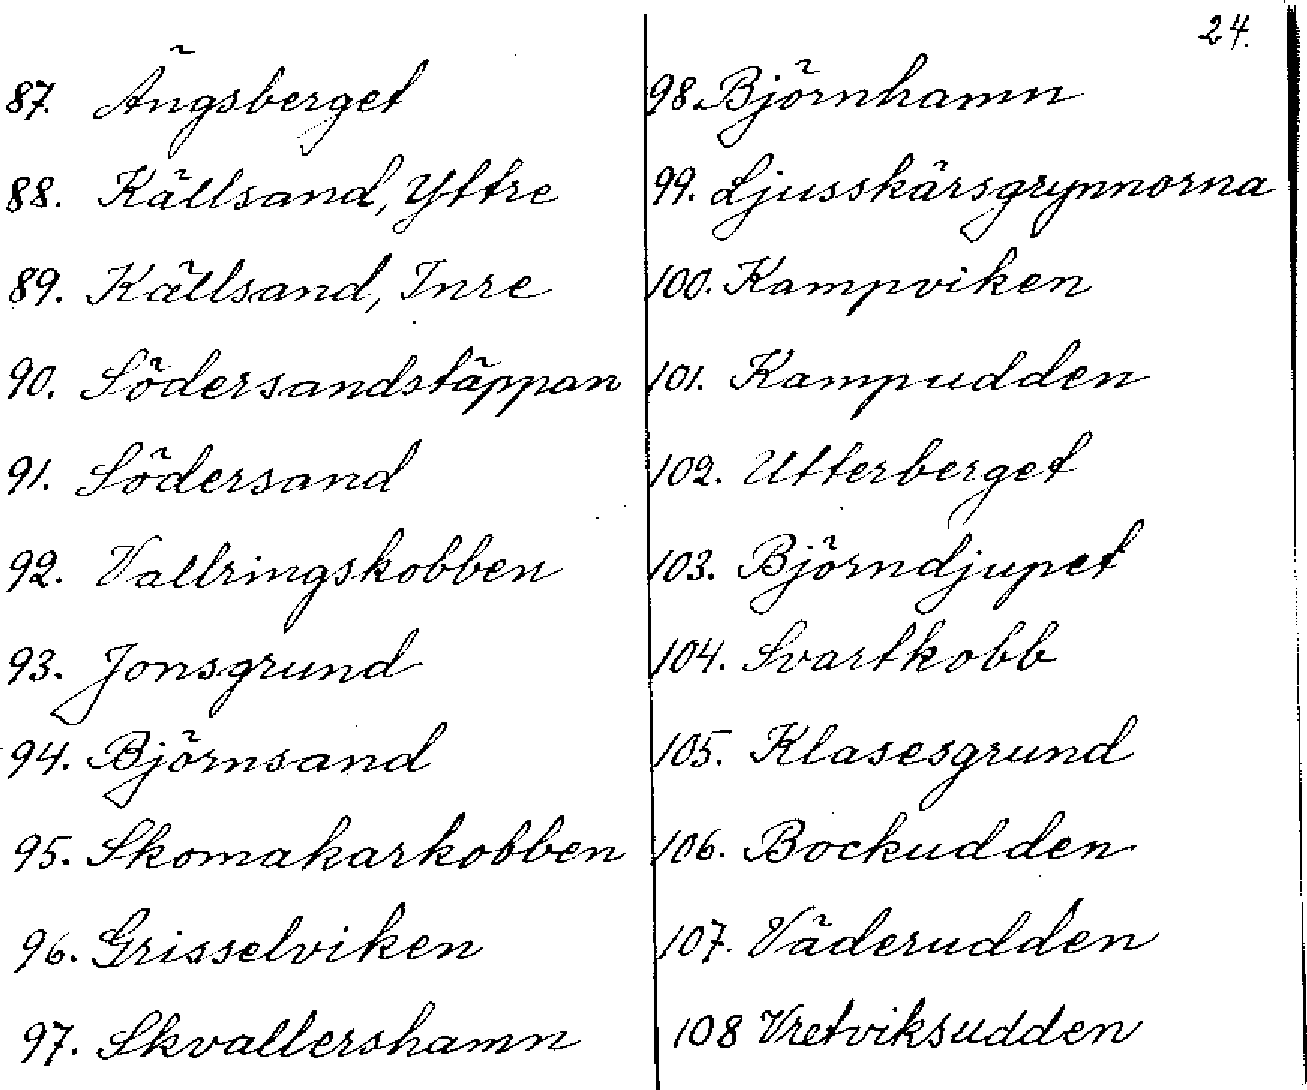 24.
87. Ängsberget
88. Källsand, Yttre
89. Källsand, Inre
90. Södersandstäppan
91. Södersand
92. Vallringskobben
93. Jonsgrund
94. Björnsand
95. Skomakarkobben
96. Grisselviken
97. Skvallershamn
98. Björnhamn
99. Ljusskärsgrynnorna
100. Kampviken
101. Kampudden
102. Utterberget
103. Björndjupet
104. Svartkobb
105. Klasesgrund
106. Bockudden
107. Väderudden
108 Vretviksudden